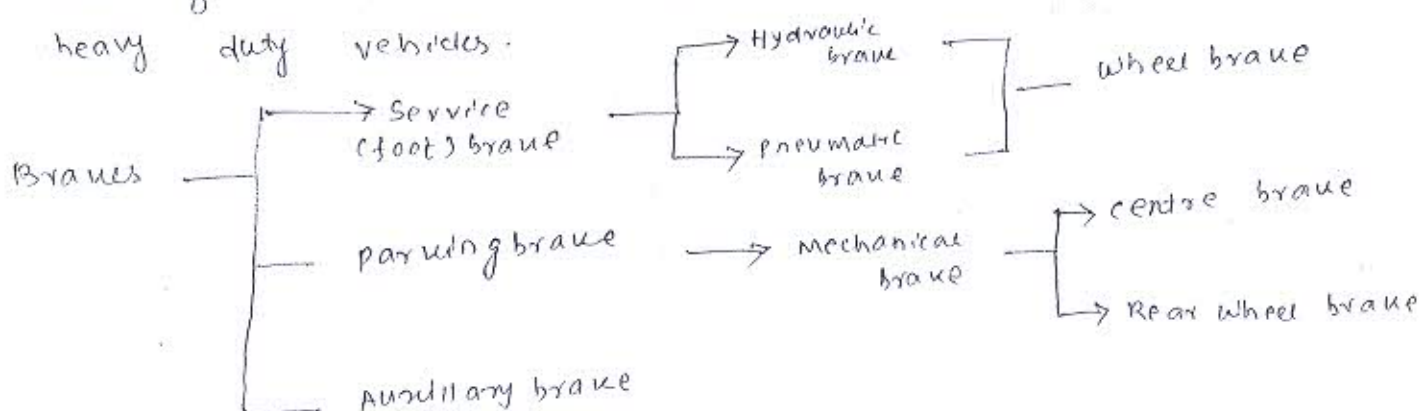 heavy duty vehicles.
Brakes
Service
(foot) brake
Hydraulic
brake
Pneumatic
brake
Wheel brake
parking brake
Mechanical
brake
centre brake
Rear wheel brake
Auxillary brake